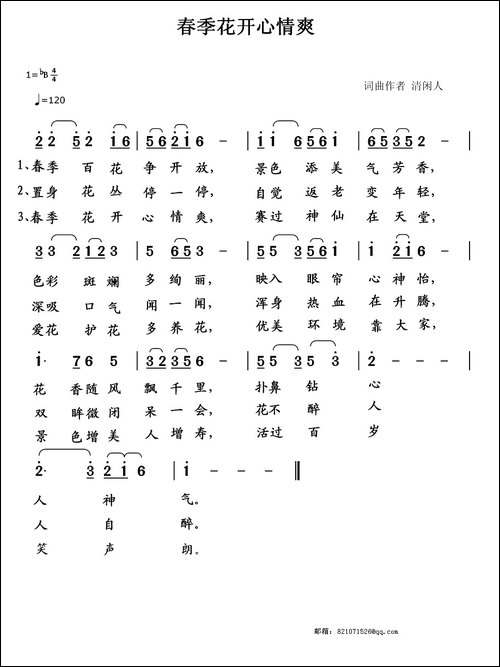 春季花开心情爽
1=♭B 4/4
♩=120
词曲作者 清闲人
2 2 5 2 1 6 5 6 2 1 6 - | 1 1 6 5 6 5 6 1 - |
1、春季 百花 争开放， 景色 添美 气芳香，
2、置身 花丛 停一停， 自觉 返老 变年轻，
3、春季 花开 心情爽， 赛过 神仙 在天堂，
3 3 2 1 2 3 5 2 1 6 - | 1 3 5 6 1 1 2 1 6 - |
色彩 斑斓 多绚丽， 映入 眼帘 心神怡，
深吸 口气 闻一闻， 浑身 热血 在升腾，
爱花 护花 多养花， 优美 环境 靠大家，
1· 7 6 5 3 2 3 5 6 - | 5 5 3 5 3 | 2 - - |
花 香随风 飘千里， 扑鼻 钻 心
双 眸微闭 呆一会， 花不 醉 人
景 色增美 人增寿， 活过 百 岁
2· 3 2 1 6 | 1 - - ‖
人 神 气。
人 自 醉。
笑 声 朗。
邮箱：821071526@qq.com